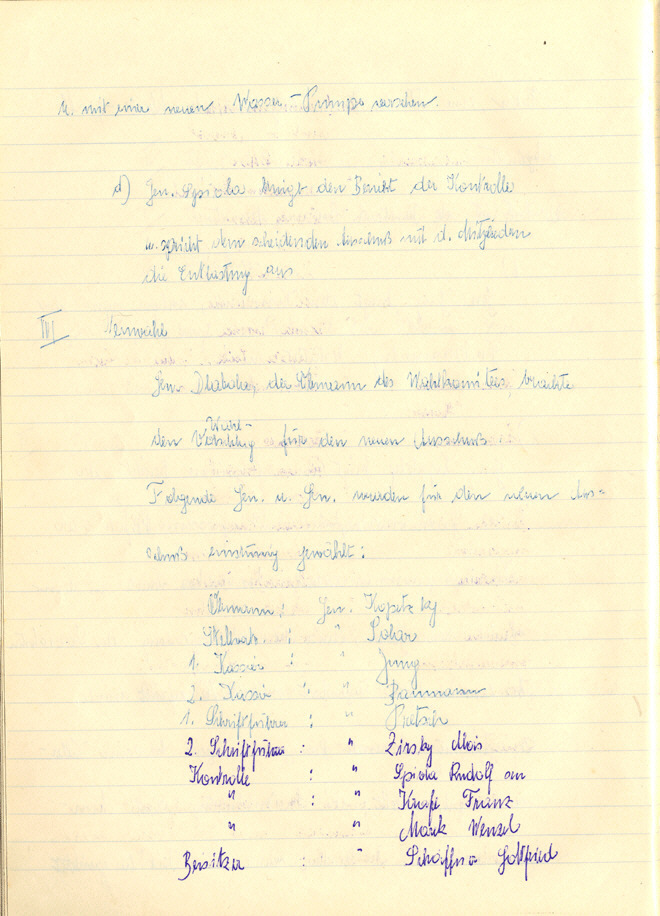 u. mit einer neuen Wasser-Pumpe versehen.
d) Gen. Spiola bringt den Bericht der Kontrolle
u. spricht dem scheidenden Ausschuß mit d. Mitgliedern
die Entlastung aus
III Neuwahl
Gen. Dlabaha, der Obmann des Wahlkomitees, brachte
Wahl-
den Vorschlag für den neuen Ausschuß.
Folgende Gen. u. Gen. wurden für den neuen Aus=
schuß einstimig gewählt:
Obmann: Gen. Kopetzky
Stellvertr. : " Sohar
1. Kassier : " Jung
2. Kassier : " Baumann
1. Schriftführer : " Pretsch
2. Schriftführer : " Zirsky Alois
Kontrolle : " Spiola Rudolf sen
" : " Knapf Franz
" " Marek Wenzel
Beisitzer : " Schaffner Gottfried